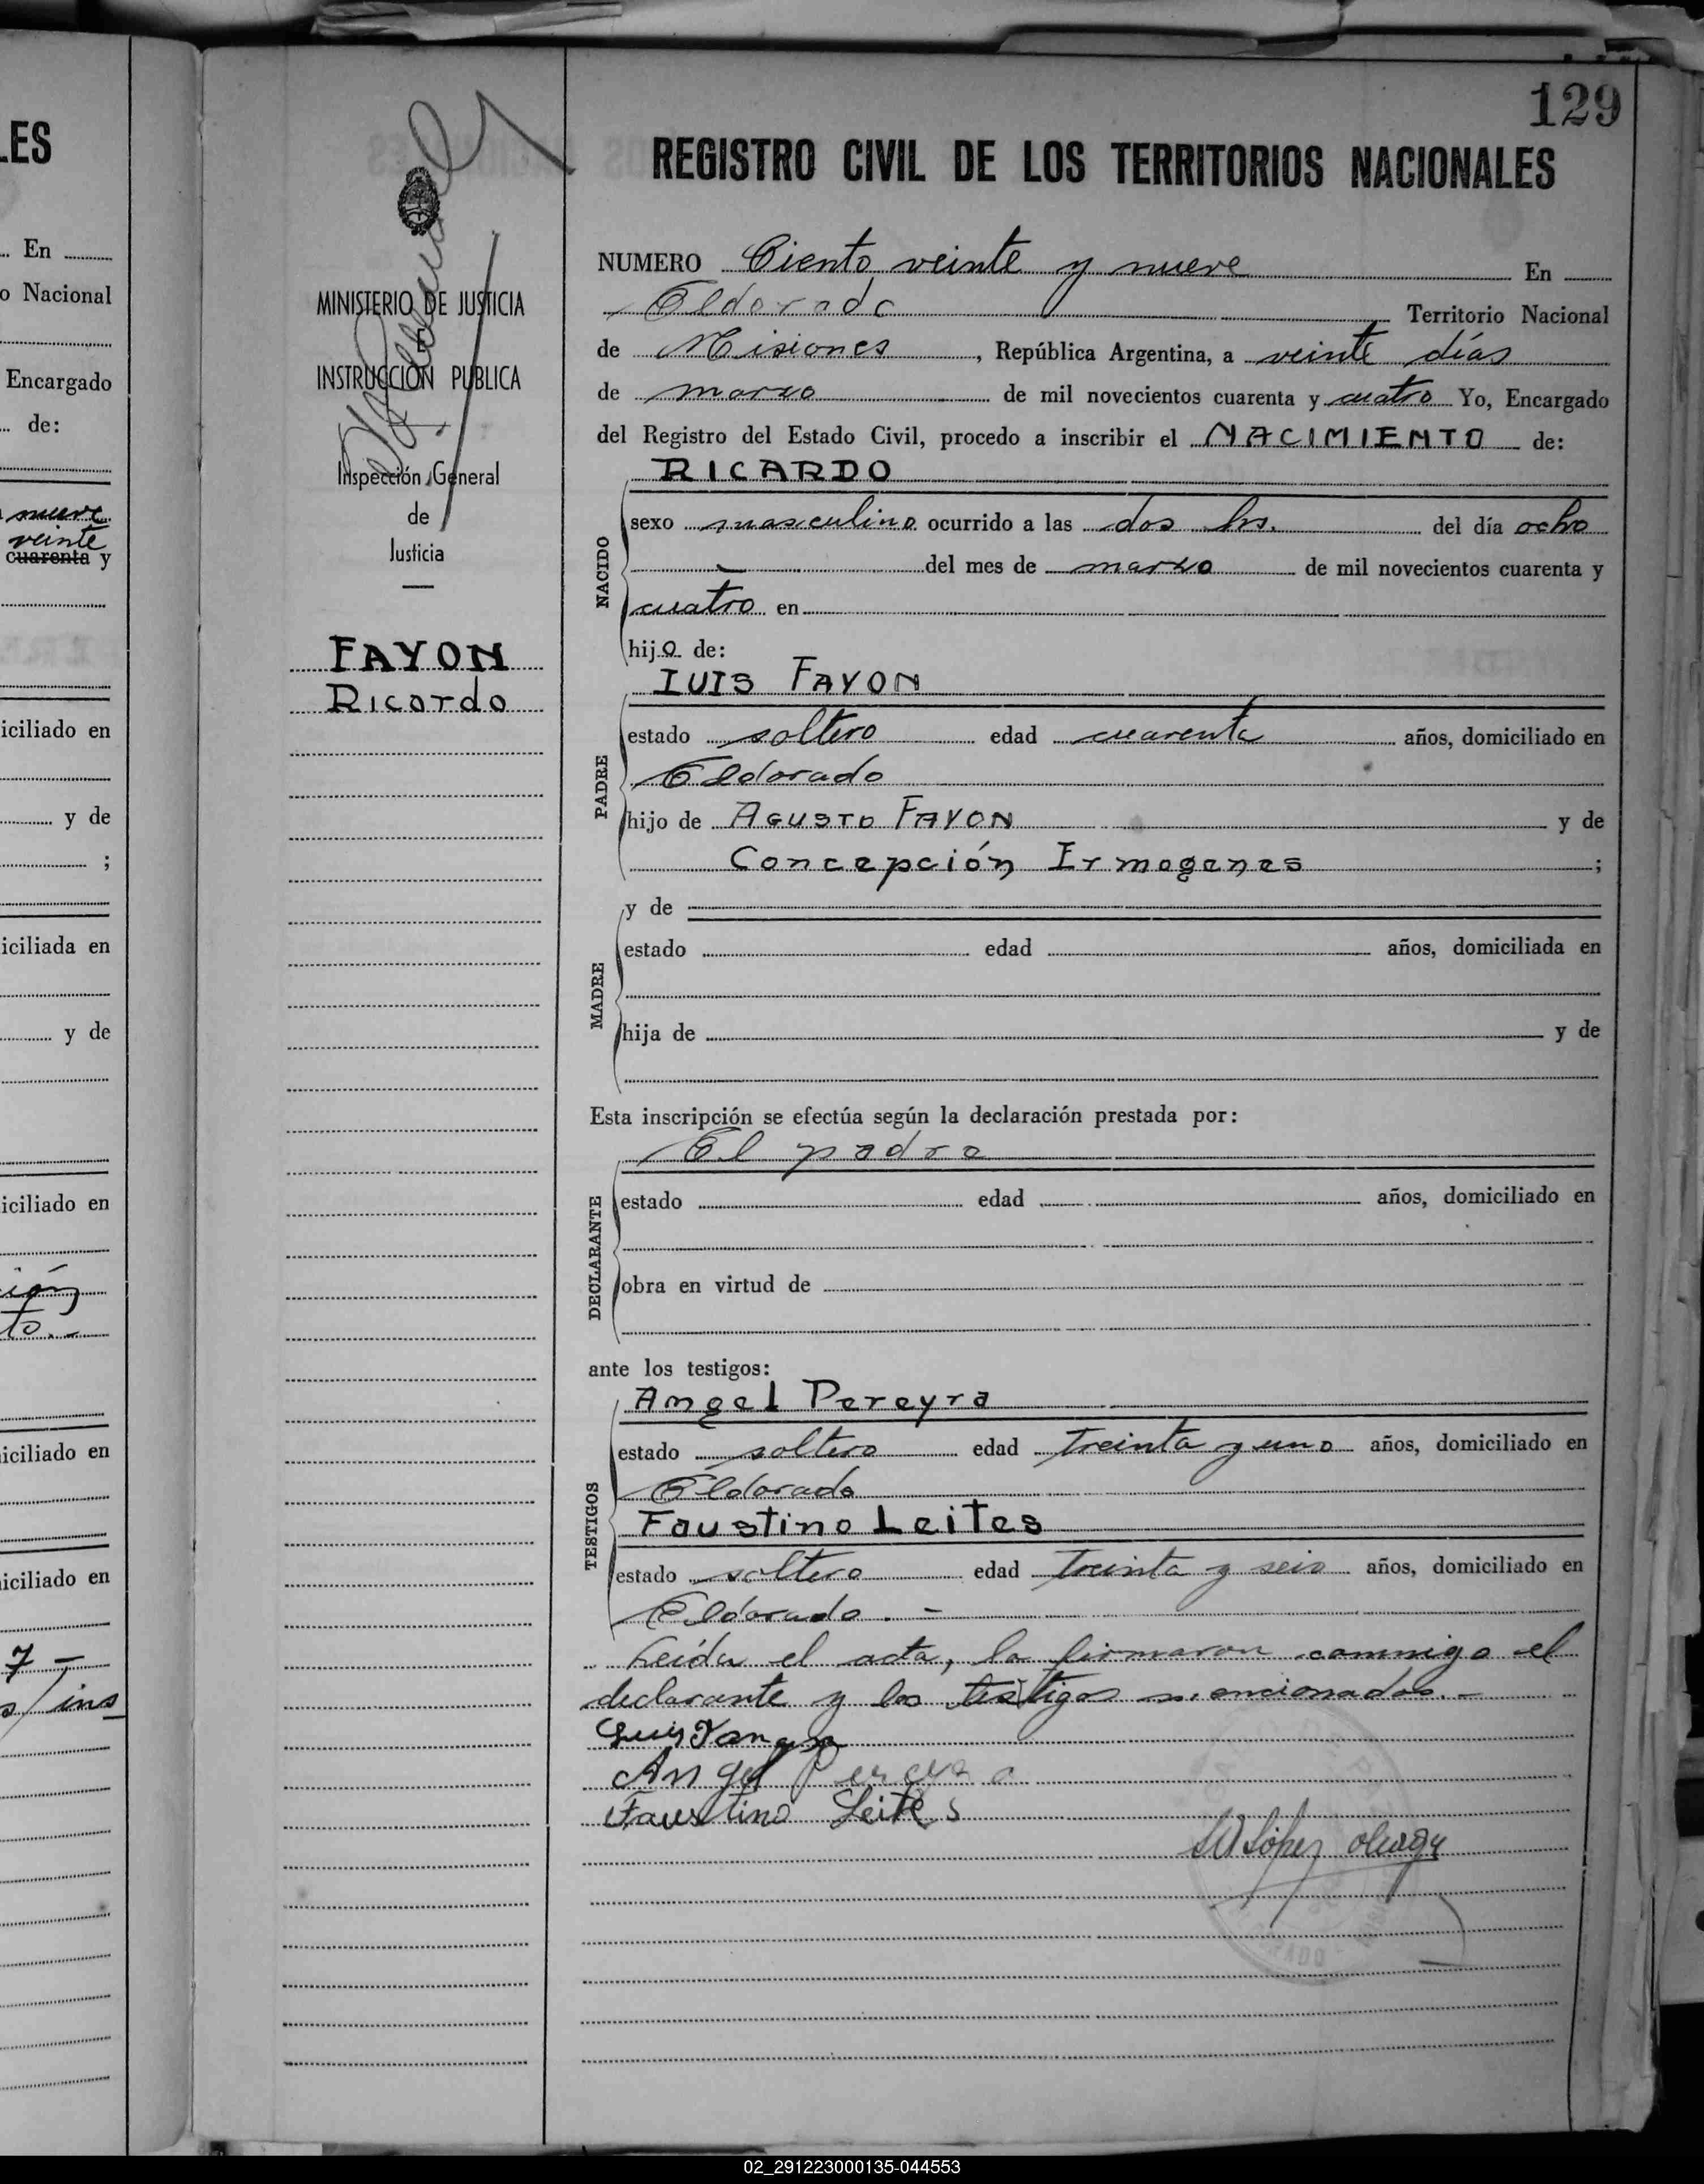 LES
En
o Nacional
Encargado
de:
nueve
veinte
cuarenta y
iciliado en
y de
;
iciliada en
y de
iciliado en
ión
to.-
iciliado en
iciliado en
7 -
s/ins
MINISTERIO DE JUSTICIA
E
INSTRUCCION PUBLICA
Inspección General
de
Justicia
FAYON
Ricardo
129
REGISTRO CIVIL DE LOS TERRITORIOS NACIONALES
NUMERO Ciento veinte y nueve En
Eldorado Territorio Nacional
de Misiones, República Argentina, a veinte días
de marzo de mil novecientos cuarenta y cuatro Yo, Encargado
del Registro del Estado Civil, procedo a inscribir el NACIMIENTO de:
RICARDO
NACIDO
sexo masculino ocurrido a las dos hs. del día ocho
del mes de marzo de mil novecientos cuarenta y
cuatro en
hijo de:
LUIS FAYON
PADRE
estado soltero edad cuarenta años, domiciliado en
Eldorado
hijo de AGUSTO FAYON y de
Concepción Ermogenes ;
MADRE
y de
estado edad años, domiciliada en
hija de y de
Esta inscripción se efectúa según la declaración prestada por:
El padre
DECLARANTE
estado edad años, domiciliado en
obra en virtud de
ante los testigos:
TESTIGOS
Angel Pereyra
estado soltero edad treinta y uno años, domiciliado en
Eldorado
Faustino Leites
estado soltero edad treinta y seis años, domiciliado en
Eldorado.-
Leída el acta, la firmaron conmigo el
declarante y los testigos mencionados.-
Luis
Angel Pereyra
Faustino Leites
López
02_291223000135-044553